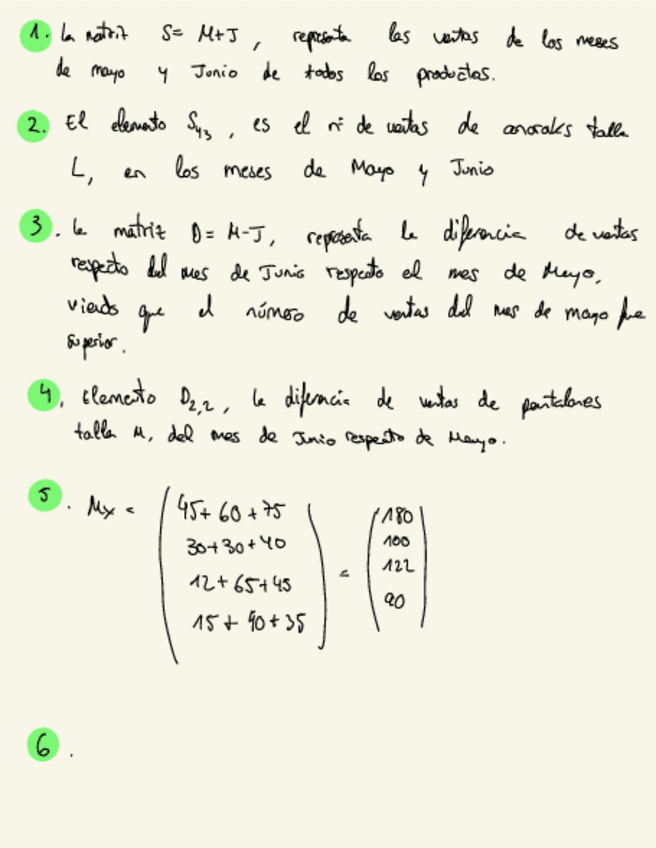 1. La matriz S= M+J, representa las ventas de los meses
de mayo y Junio de todos los productos.
2. El elemento S₄₃, es el nº de ventas de anoraks talla
L, en los meses de Mayo y Junio
3. La matriz D= M-J, representa la diferencia de ventas
respecto del mes de Junio respecto el mes de Mayo,
viendo que el número de ventas del mes de mayo fue
superior.
4. Elemento D₂,₂, la diferencia de ventas de pantalones
talla M, del mes de Junio respecto de Mayo.
5. Mx = (45+60+75 = (180
30+30+40 100
12+65+45 122
15+40+35) 90)
6.